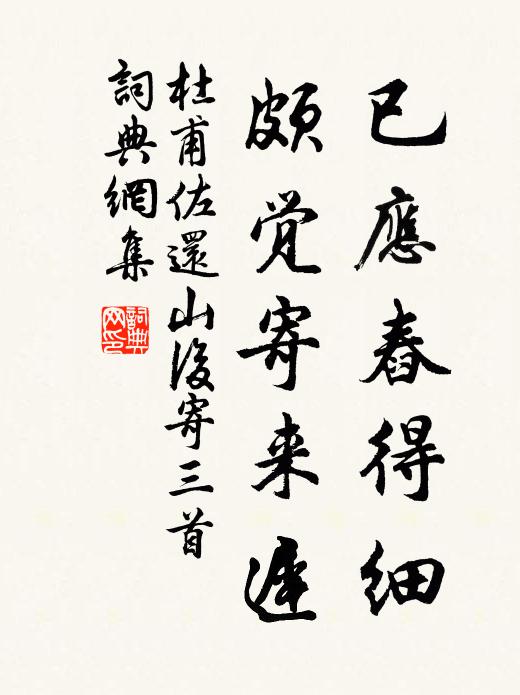 已應舂得細
頗觉寄来遲
杜甫佐還山後寄三首
詞典網集
詞典
网印